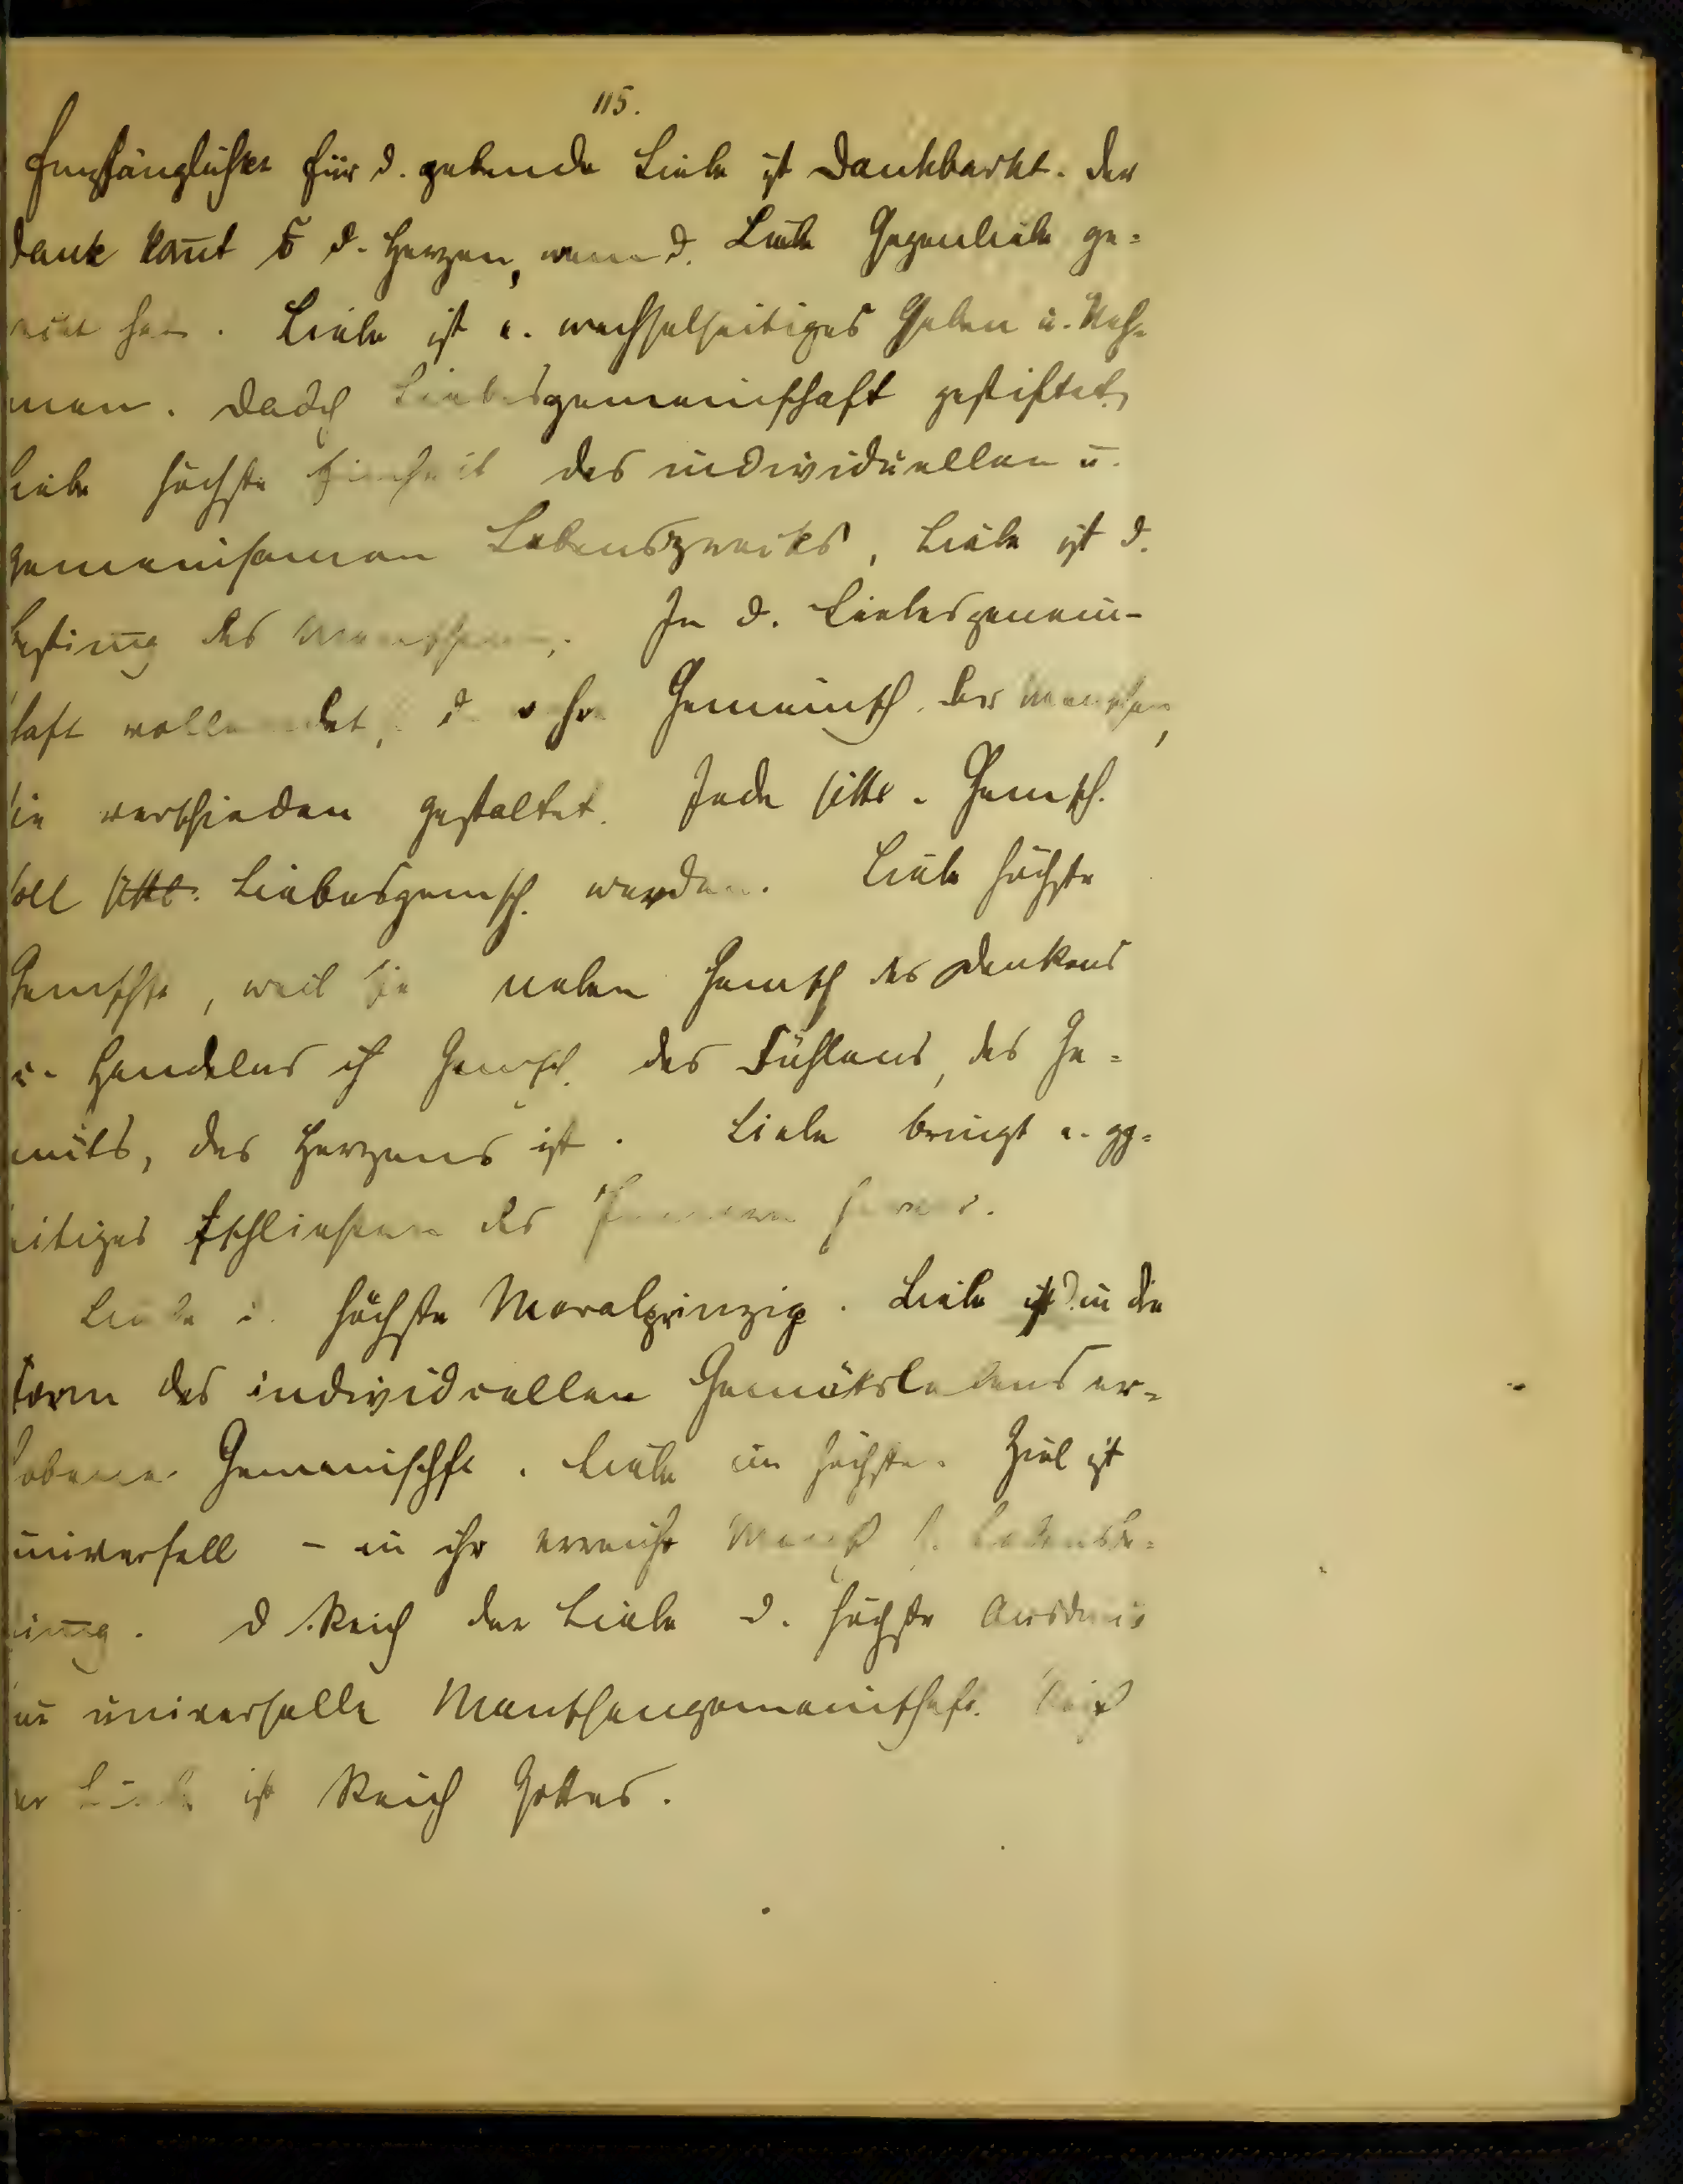 115.
Empfänglichkt für d. gebende Liebe ist Dankbarkt. Der
Dank kom̄t d. Herzen, wenn d. Liebe Gegenliebe ge=
. Liebe ist e. wechselseitiges Geben u. Neh=
men. Dadch Liebesgemeinschaft gestiftet,
Liebe höchste Einheit des individuellen u.
gemeinsamen Lebenszwecks, Liebe ist d.
Bestim̄g des Menschen. In d. Liebesgemein-
schaft vollendet, d. Gemeinsch. der Menschen,
die verschieden gestaltet. Jede sittl. Gemsch.
soll sittl. Liebesgemsch. werden. Liebe höchste
Gemschft, weil sie neben Gemsch des Denkens
u. Handelns Gemsch. des Fühlens, des Ge=
müts, des Herzens ist. Liebe bringt e. gg=
seitiges schließen des
Liebe d. höchste Moralprinzip. Liebe ist d. in die
Form des individuellen Gemütslebens er=
hobene Gemeinschft. Liebe im höchsten Ziel ist
universell - in ihr erreicht Mensch s. Lebensbe=
stim̄g. D. Reich der Liebe d. höchste
universelle Menschengemeinschaft. Reich
der Liebe ist Reich Gottes.